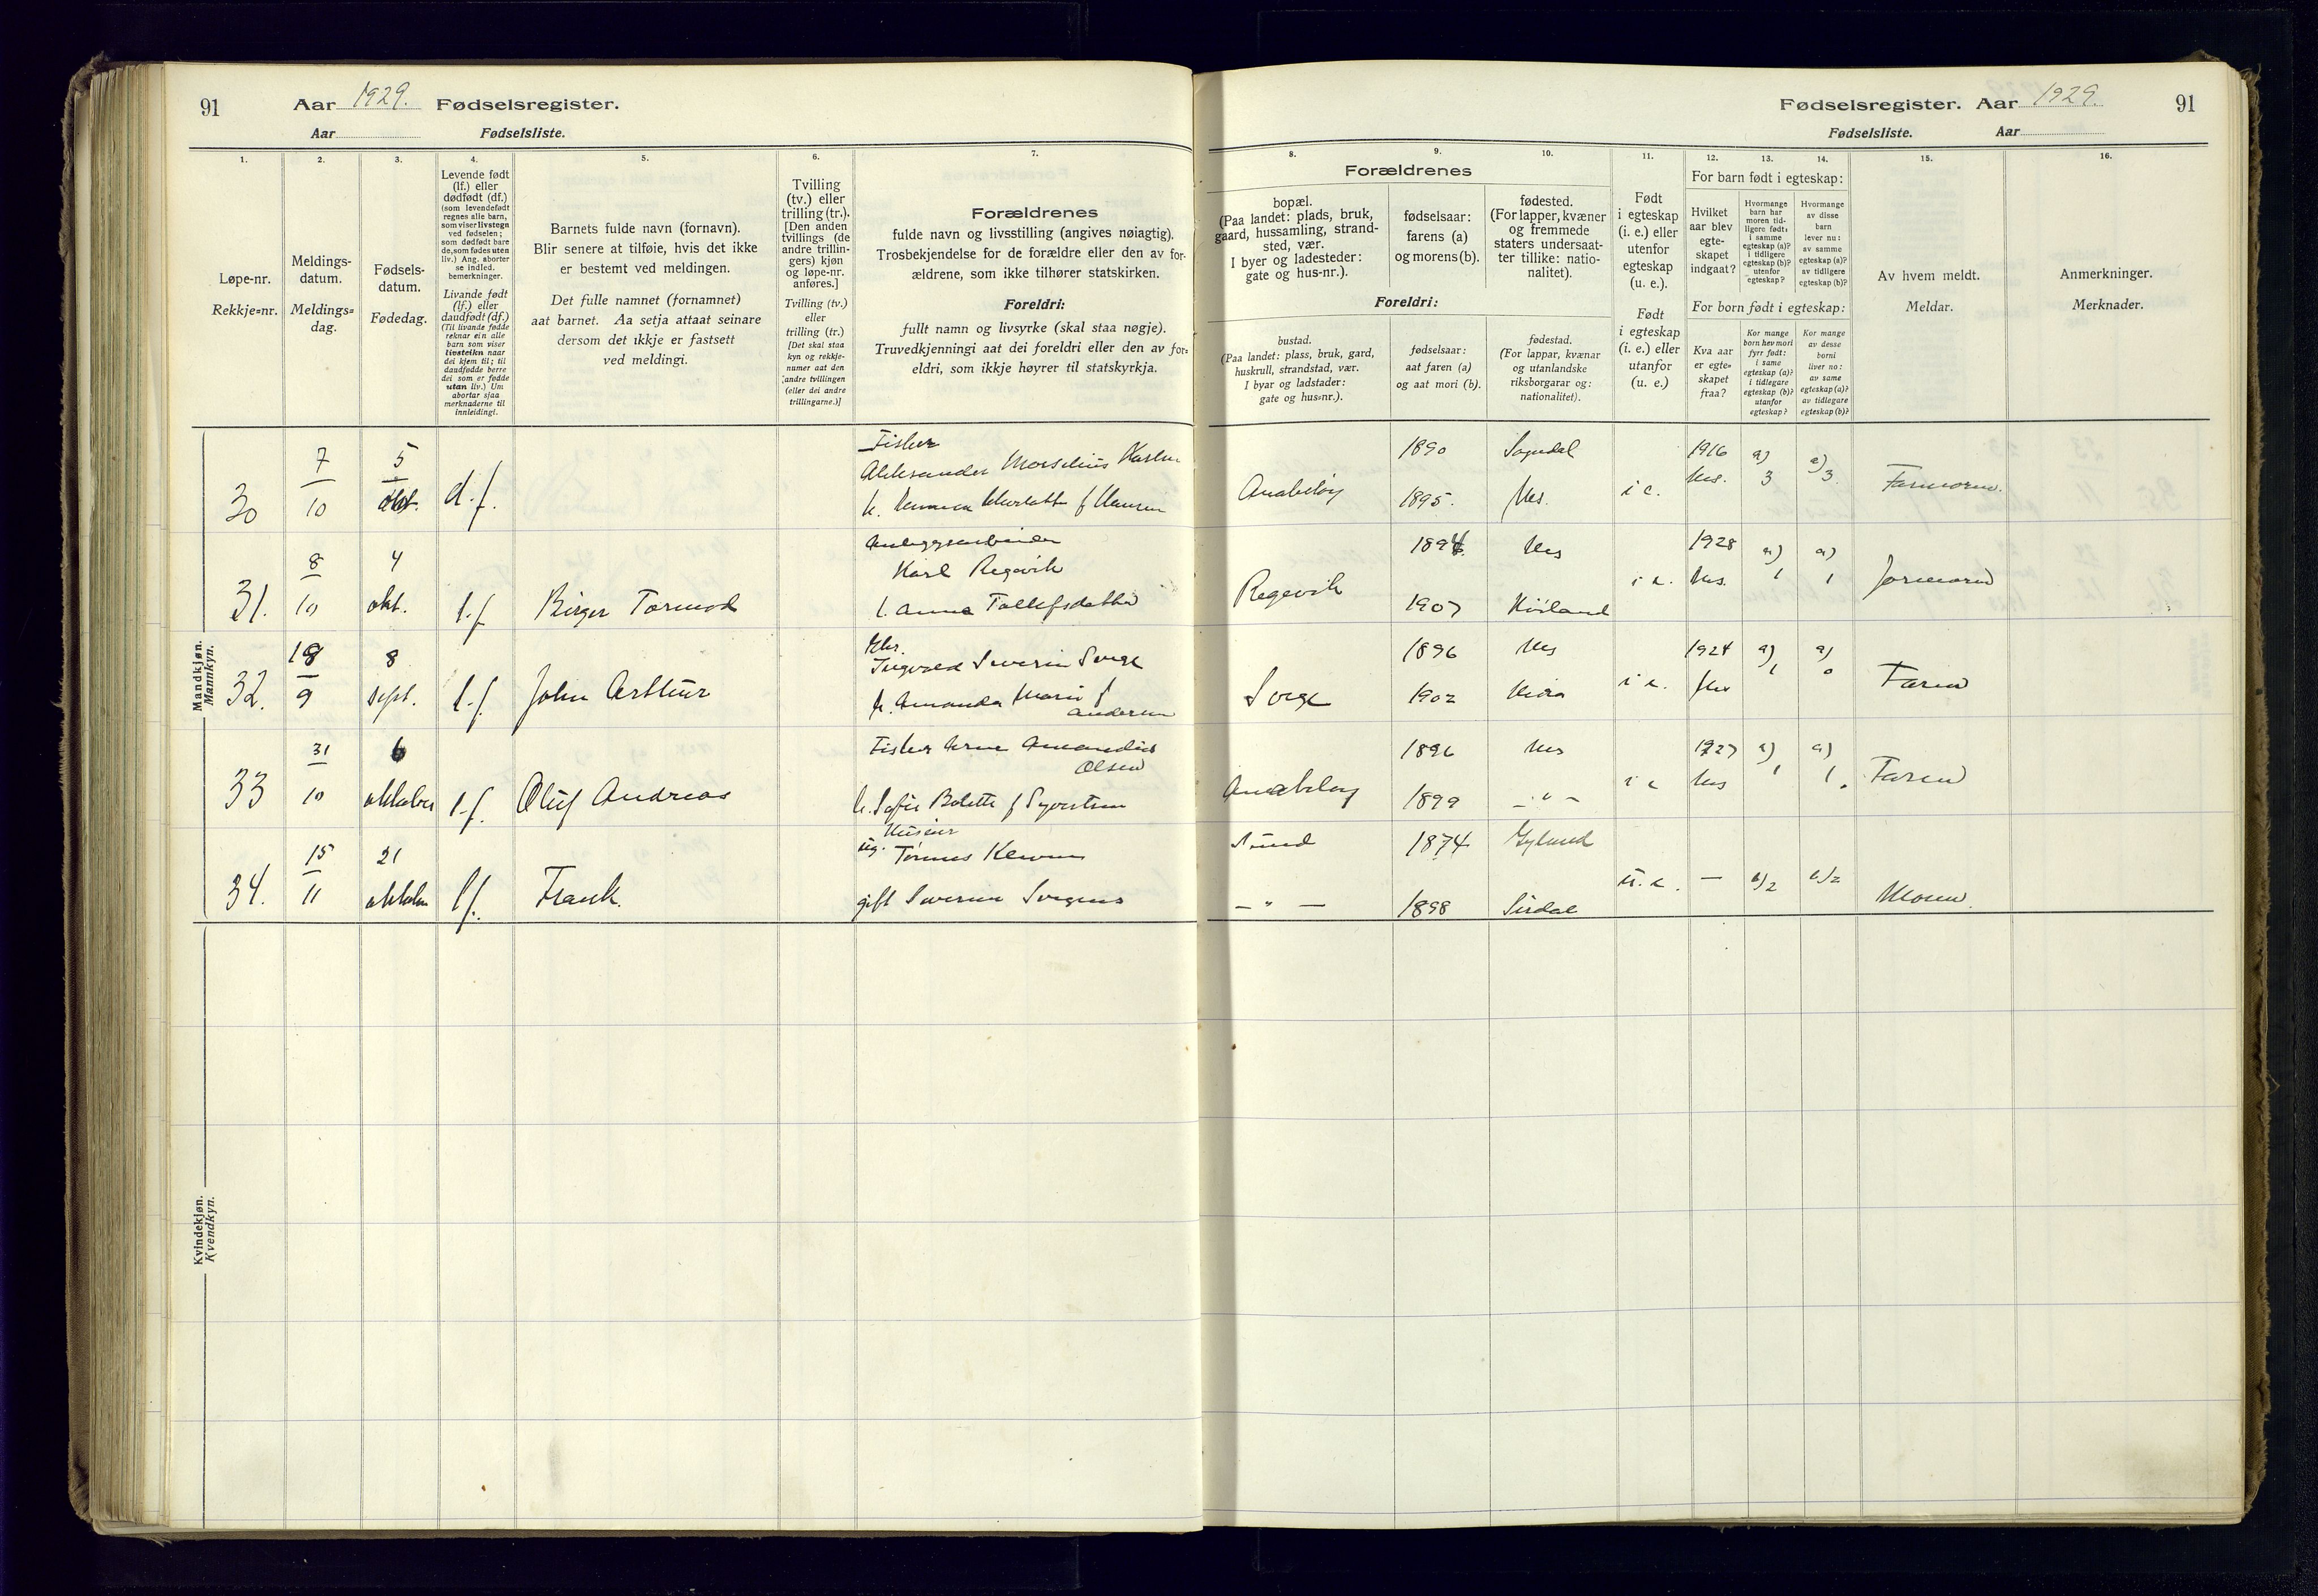 91
Aar 1929. Fødselsregister.
Aar Fødselsliste.
Fødselsregister. Aar 1929.
Fødselsliste. Aar
91
1.
Løpe-nr.
Rekkje-nr.
2.
Meldings-
datum.
Meldings-
dag.
3.
Fødsels-
datum.
Fødedag.
4.
Levende født
(lf.) eller
dødfødt (df.)
(som levendefødt
regnes alle barn,
som viser livstegn
ved fødselen;
som dødfødt bare
de, som fødes uten
liv.) Ang. aborter
se indled.
bemerkninger.
Livande født
(lf.) eller
daudfødt (df.)
(Til livande fødde
reknar ein alle
barn som viser
livsteikn naar
dei kjem til; til
daudfødde berre
dei som er fødde
utan liv.) Um
abortar sjaa
merknaderne til
innleidingi.
5.
Barnets fulde navn (fornavn).
Blir senere at tilføie, hvis det ikke
er bestemt ved meldingen.
Det fulle namnet (fornamnet)
aat barnet. Aa setja attaat seinare
dersom det ikkje er fastsett
ved meldingi.
6.
Tvilling
(tv.) eller
trilling (tr.).
[Den anden
tvillings (de
andre trillin-
gers) kjøn
og løpe-nr.
anføres.]
Tvilling (tv.)
eller
trilling (tr.)
[Det skal staa
kyn og rekkje-
numer aat den
andre tvillingen
(eller dei andre
trillingarne.)]
7.
Forældrenes
fulde navn og livsstilling (angives nøiagtig).
Trosbekjendelse for de forældre eller den av for-
ældrene, som ikke tilhører statskirken.
Foreldri:
fullt namn og livsyrke (skal staa nøgje).
Truvedkjenningi aat dei foreldri eller den av for-
eldri, som ikkje høyrer til statskyrkja.
Forældrenes
8.
bopæl.
(Paa landet: plads, bruk,
gaard, hussamling, strand-
sted, vær.
I byer og ladesteder:
gate og hus-nr.).
9.
fødselsaar:
farens (a)
og morens (b).
10.
fødested.
(For lapper, kvæner
og fremmede
staters undersaat-
ter tillike: natio-
nalitet).
Foreldri:
bustad.
(Paa landet: plass, bruk, gard,
huskrull, strandstad, vær.
I byar og ladstader:
gate og hus-nr.).
fødselsaar:
aat faren (a)
og aat mori (b).
fødestad.
(For lappar, kvænar
og utanlandske
riksborgarar og:
nationalitet).
11.
Født
i egteskap
(i. e.) eller
utenfor
egteskap
(u. e.).
Født
i egteskap
(i. e.) eller
utanfor
(u. e.)
For barn født i egteskap:
12.
Hvilket
aar blev
egte-
skapet
indgaat?
13.
Hvormange
barn har
moren tid-
ligere født:
i samme
egteskap (a)?
i tidligere
egteskap (b)?
utenfor
egteskap?
14.
Hvormange
av disse
barn
lever nu:
av samme
egteskap (a)?
av tidligere
egteskap (b)?
For born født i egteskap:
Kva aar
er egte-
skapet
fraa?
Kor mange
born hev mori
fyrr født:
i same
egteskap (a)?
i tidlegare
egteskap (b)?
utanfor
egteskap?
Kor mange
av desse
borni
liver no:
av same
egteskap (a)?
av tidlegare
egteskap (b)?
15.
Av hvem meldt.
Meldar.
16.
Anmerkninger.
Merknader.
Mandkjøn.
Mannkyn.
30 7/10 5 okt. d.f.
Fisker
Aleksander Karlsen
f Hansen
Anabeløy 1890 Sogndal 1895. Nes. i e. 1916 Nes. a) 3 a) 3. Farmoren.
31. 8/10 4 okt. l.f. Birger Tormod
Anleggsarbeider
Karl Regevik
Anna Tollefsdatter
Regevik 1894 Nes 1907 i e. 1928 Nes. a) 1 a) 1 Jormoren
32. 18/9 8 sept. l.f. John Arthur
Ingvald Severin Svege
h. Amanda Marie f
Andersen
1896 Nes 1902 i e. 1924 Nes a) 1 a) 0 Faren
33 31/10 6 oktober l.f. Oluf Andreas
Fisker Arne
Olsen
h. Sofie Bolette f Syvertsen
Anabeløy 1896 Nes 1899 — " — i e 1927 Nes a) 1 a) 1. Faren
34. 15/11 21 oktober l f. Frank.
ug.
gift
Sund 1874 Gyland
— " — 1898 Sirdal u. e. — b/2 b/2 Moren.
Kvindekjøn.
Kvendkyn.